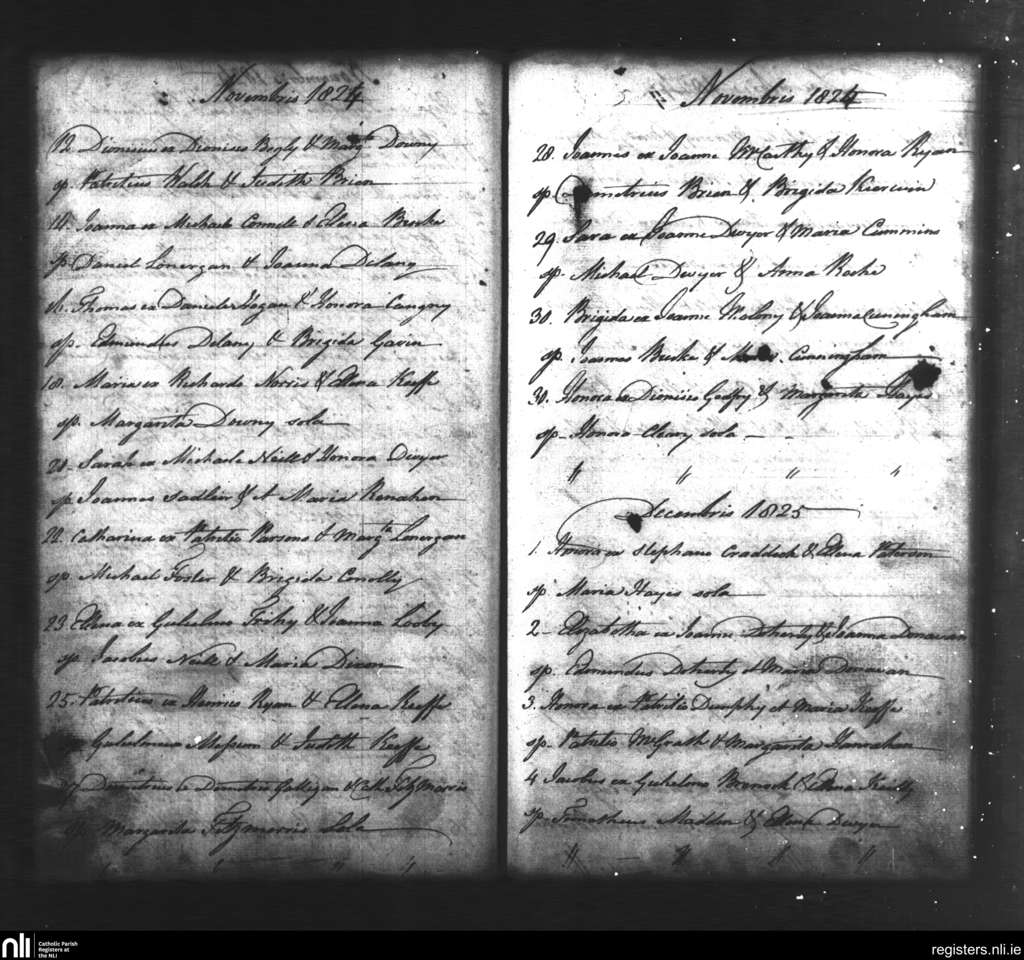 Novembris 1824
12 Dionisius ex Dionisio Begly & Margt Downy
sp. Patritius Walsh & Judith Brien
14. Joanna ex Michaele Connell & Elicia Broske
sp. Daniel Lonergan & Joanna Delany
16. Thomas ex Daniele & Honora Cangny
sp. Edmundus Delany & Brigida Gavin
18. Maria ex Richardo Norris & Ellena Keeffe
sp. Margarita Downy sola
20. Sarah ex Michaele Neill & Honora Dwyer
sp. Joannes Sadlier & A Maria Renahan
22. Catharina ex Patritio Parsons & Margta Lonergan
sp. Michael Foster & Brigida Conolly
23. Ellena ex Gulielmo Frihy & Joanna Looby
sp. Jacobus Neill & Maria Dixon
25. Patritius ex Henrico Ryan & Ellena Keeffe
Gulielmus & Judith Keeffe
Demetrius ex Demetrio Galligan & Cath FitzMorris
Margarita Fitzmorris Sola
" " "
Novembris 1824
28. Joannes ex Joanne McCarthy & Honora Ryan
sp. Demetrius Brien & Brigida Kierwin
29. Sara ex Joanne Dwyer & Maria Cummins
sp. Michael Dwyer & Anna Roche
30. Brigida ex Joanne Molony & Joanna Cuningham
sp. Joannes Burke & Cunningham
30. Honora ex Dionisio Godfry & Margarita Hayes
sp. Honora Cleary sola
" " " "
Decembris 1825
1. Honora ex Stephano Craddock & Ellena Paterson
sp. Maria Hayes sola
2. Elizabetha ex Joanne Doherty & Joanna Donavan
sp. Edmundus Doherty et Maria Donavan
3. Honora ex Patritio Dumphy et Maria Keeffe
sp. Patritio McGrath & Margarita Hanrahan
4 Jacobus ex Gulielmo Bronock & Ellena Kielly
sp. Timotheus Madden & Ellena Dwyer
" " " "
nli
Catholic Parish
Registers at
the NLI
registers.nli.ie